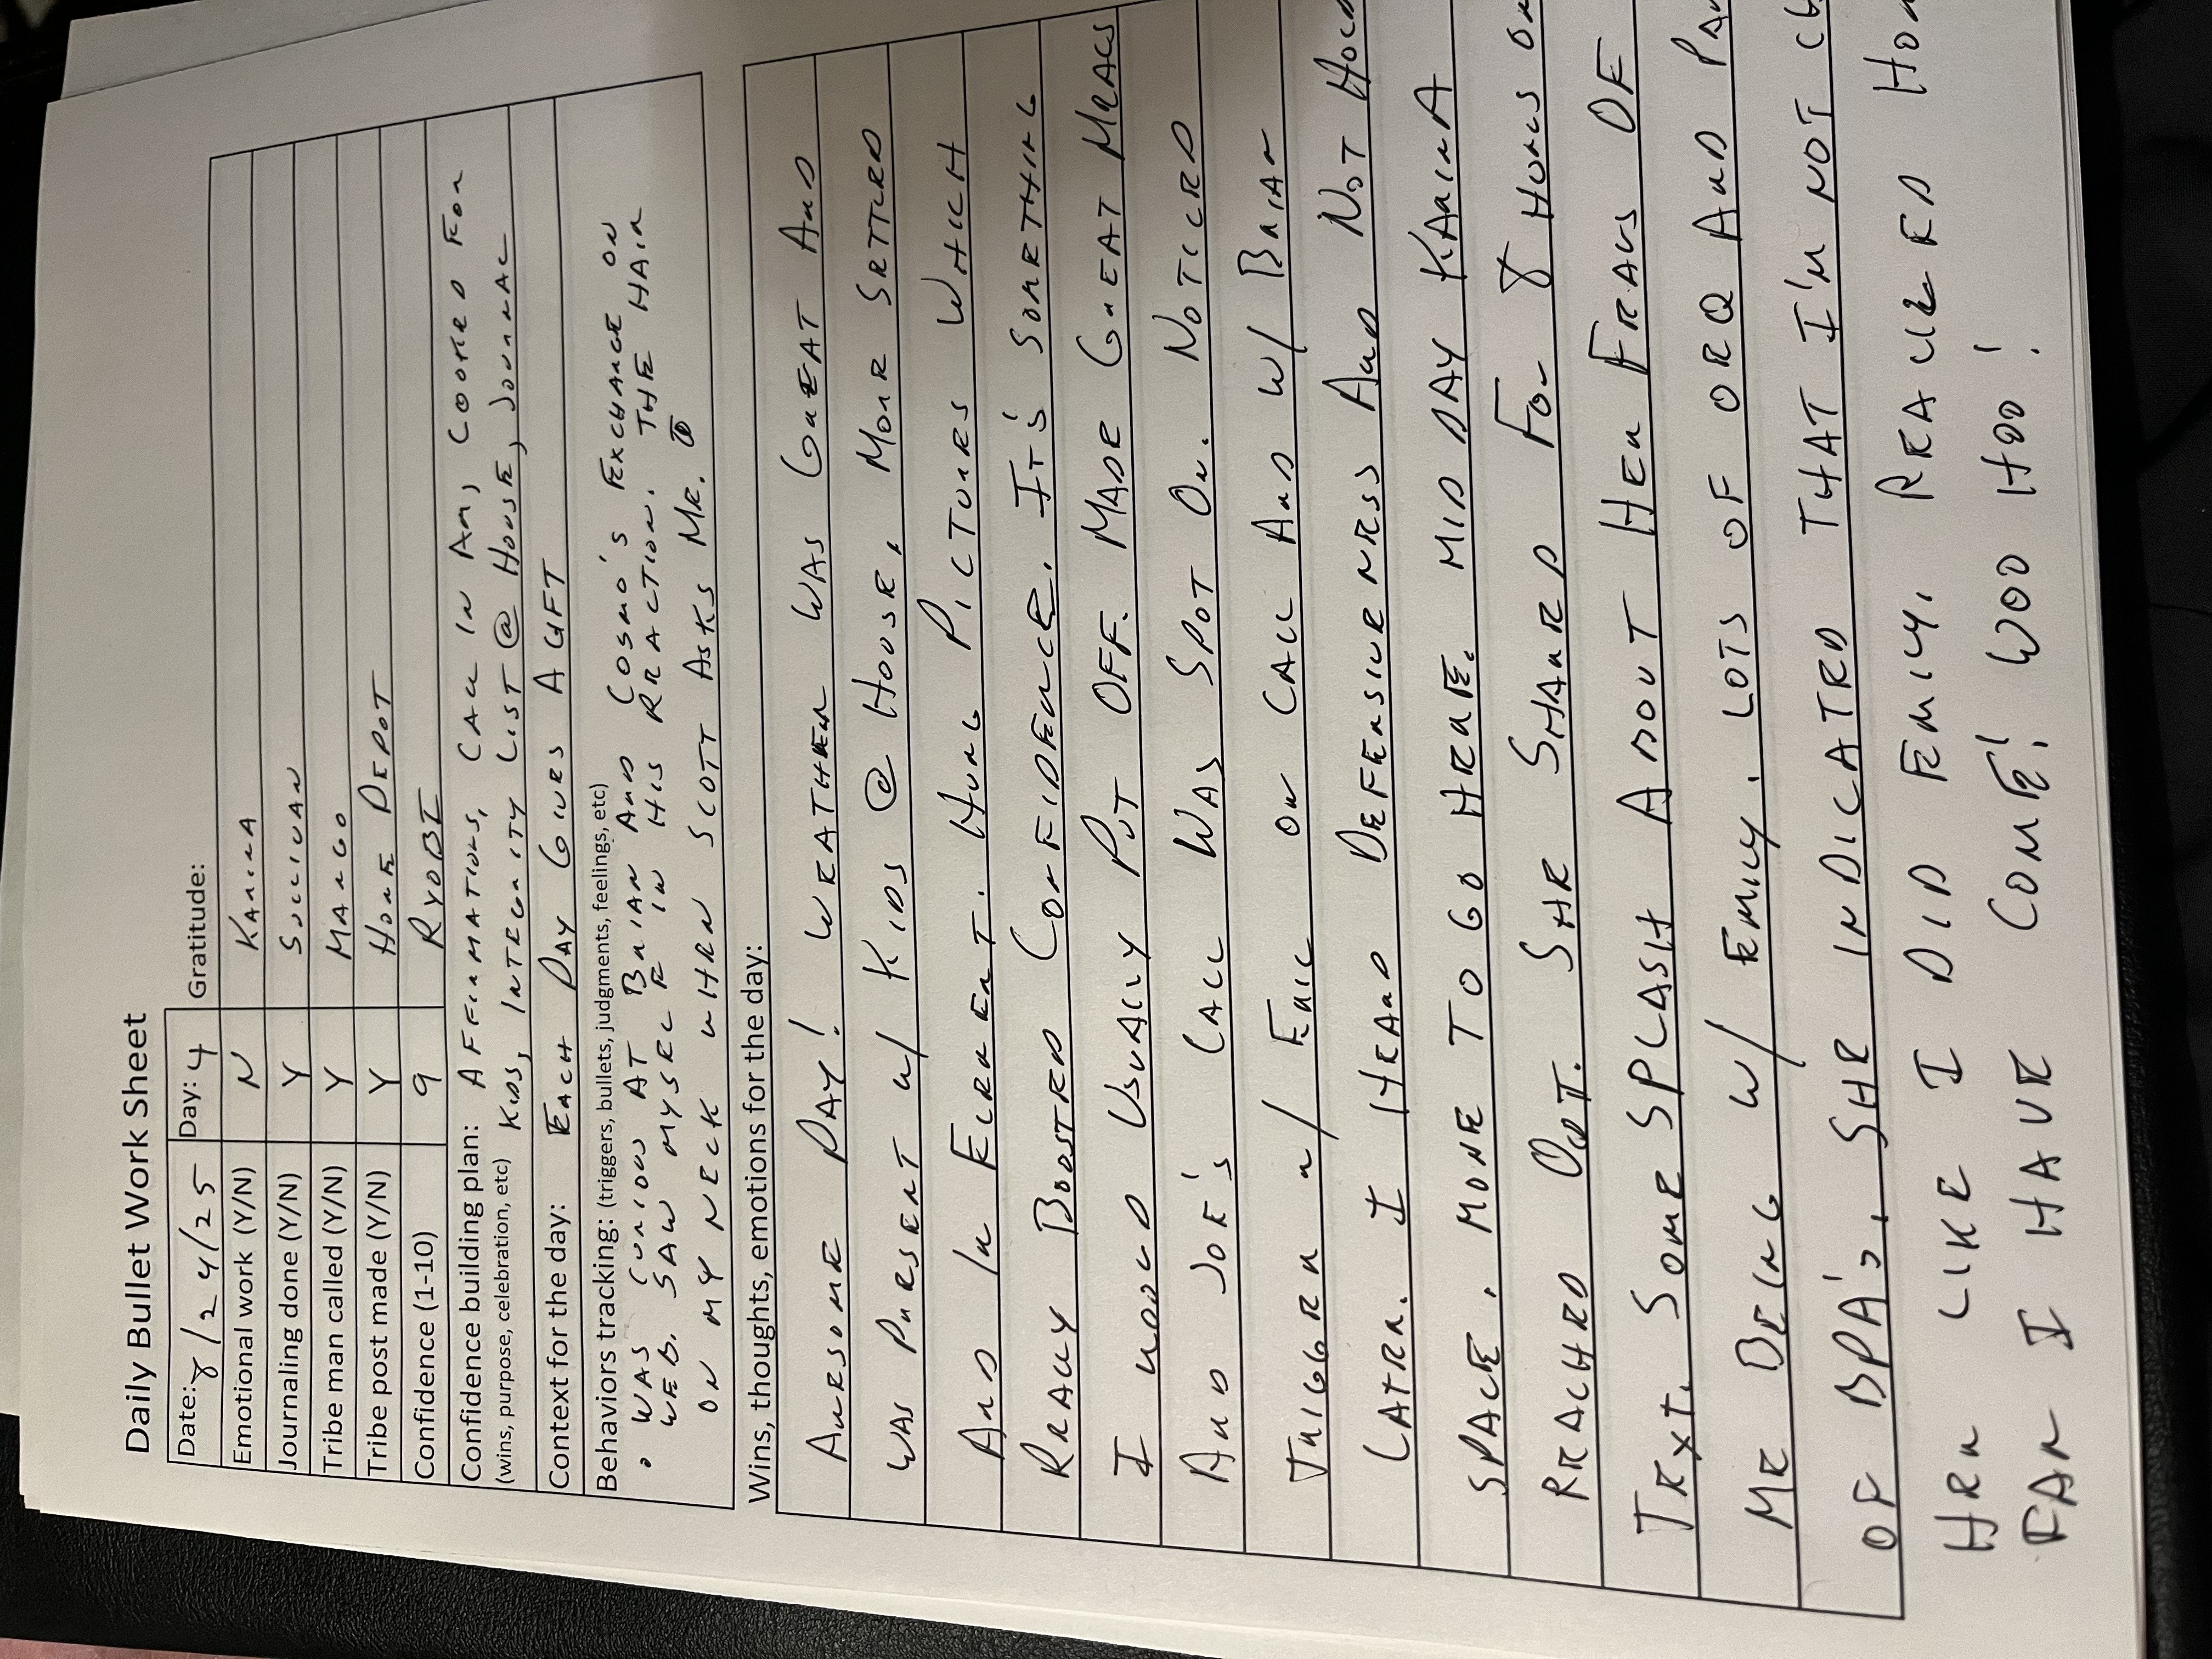 Daily Bullet Work Sheet
Date: 8/24/25 Day: 4 Gratitude:
Emotional work (Y/N) N KARINA
Journaling done (Y/N) Y SULLIVAN
Tribe man called (Y/N) Y MANGO
Tribe post made (Y/N) Y HOME DEPOT
Confidence (1-10) 9 RYOBI
Confidence building plan: AFFIRMATIONS, CALL IN AM, COOKED FOR
(wins, purpose, celebration, etc) KIDS, INTEGRITY LIST @ HOUSE, JOURNAL
Context for the day: EACH DAY GIVES A GIFT
Behaviors tracking: (triggers, bullets, judgments, feelings, etc)
• WAS CURIOUS AT BRIAN AND COSMO'S EXCHANGE ON
WED. SAW MYSELF IN HIS REACTION. THE HAIR
ON MY NECK WHEN SCOTT ASKS ME.
Wins, thoughts, emotions for the day:
AWESOME DAY! WEATHER WAS GREAT AND
WAS PRESENT W/ KIDS @ HOUSE. MORE SETTLED
AND IN ELEMENT. HUNG PICTURES WHICH
REALLY BOOSTED CONFIDENCE. IT'S SOMETHING
I WOULD USUALLY PUT OFF. MADE GREAT MEALS
AND JOE'S CALL WAS SPOT ON. NOTICED
TRIGGER W/ ERIC ON CALL AND W/ BRIAN
LATER. I HEARD DEFENSIVENESS AND NOT
SPACE. MORE TO GO HERE. MID DAY KARINA
REACHED OUT. SHE SHARED FOR 8 HOURS
TEXT. SOME SPLASH ABOUT HER FEARS OF
ME BEING W/ EMILY. LOTS OF ORQ AND
OF BPA'S. SHE INDICATED THAT I'M NOT
HER LIKE I DID EMILY. REALIZED
FAR I HAVE COME! WOO HOO!